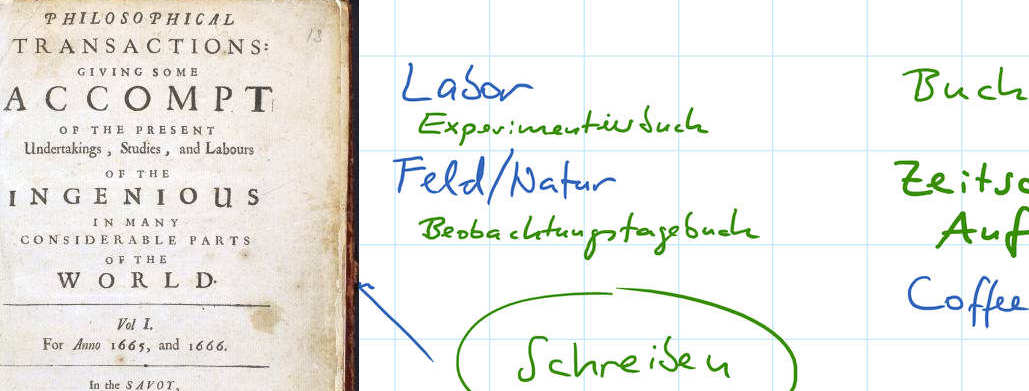 PHILOSOPHICAL
TRANSACTIONS:
GIVING SOME
ACCOMPT
OF THE PRESENT
Undertakings, Studies, and Labours
OF THE
INGENIOUS
IN MANY
CONSIDERABLE PARTS
OF THE
WORLD.
Vol I.
For Anno 1665, and 1666.
In the SAVOY,
13
Labor
Experimentierbuch
Feld/Natur
Beobachtungstagebuch
Schreiben
Buch
Zeitsc
Auf
Coffee